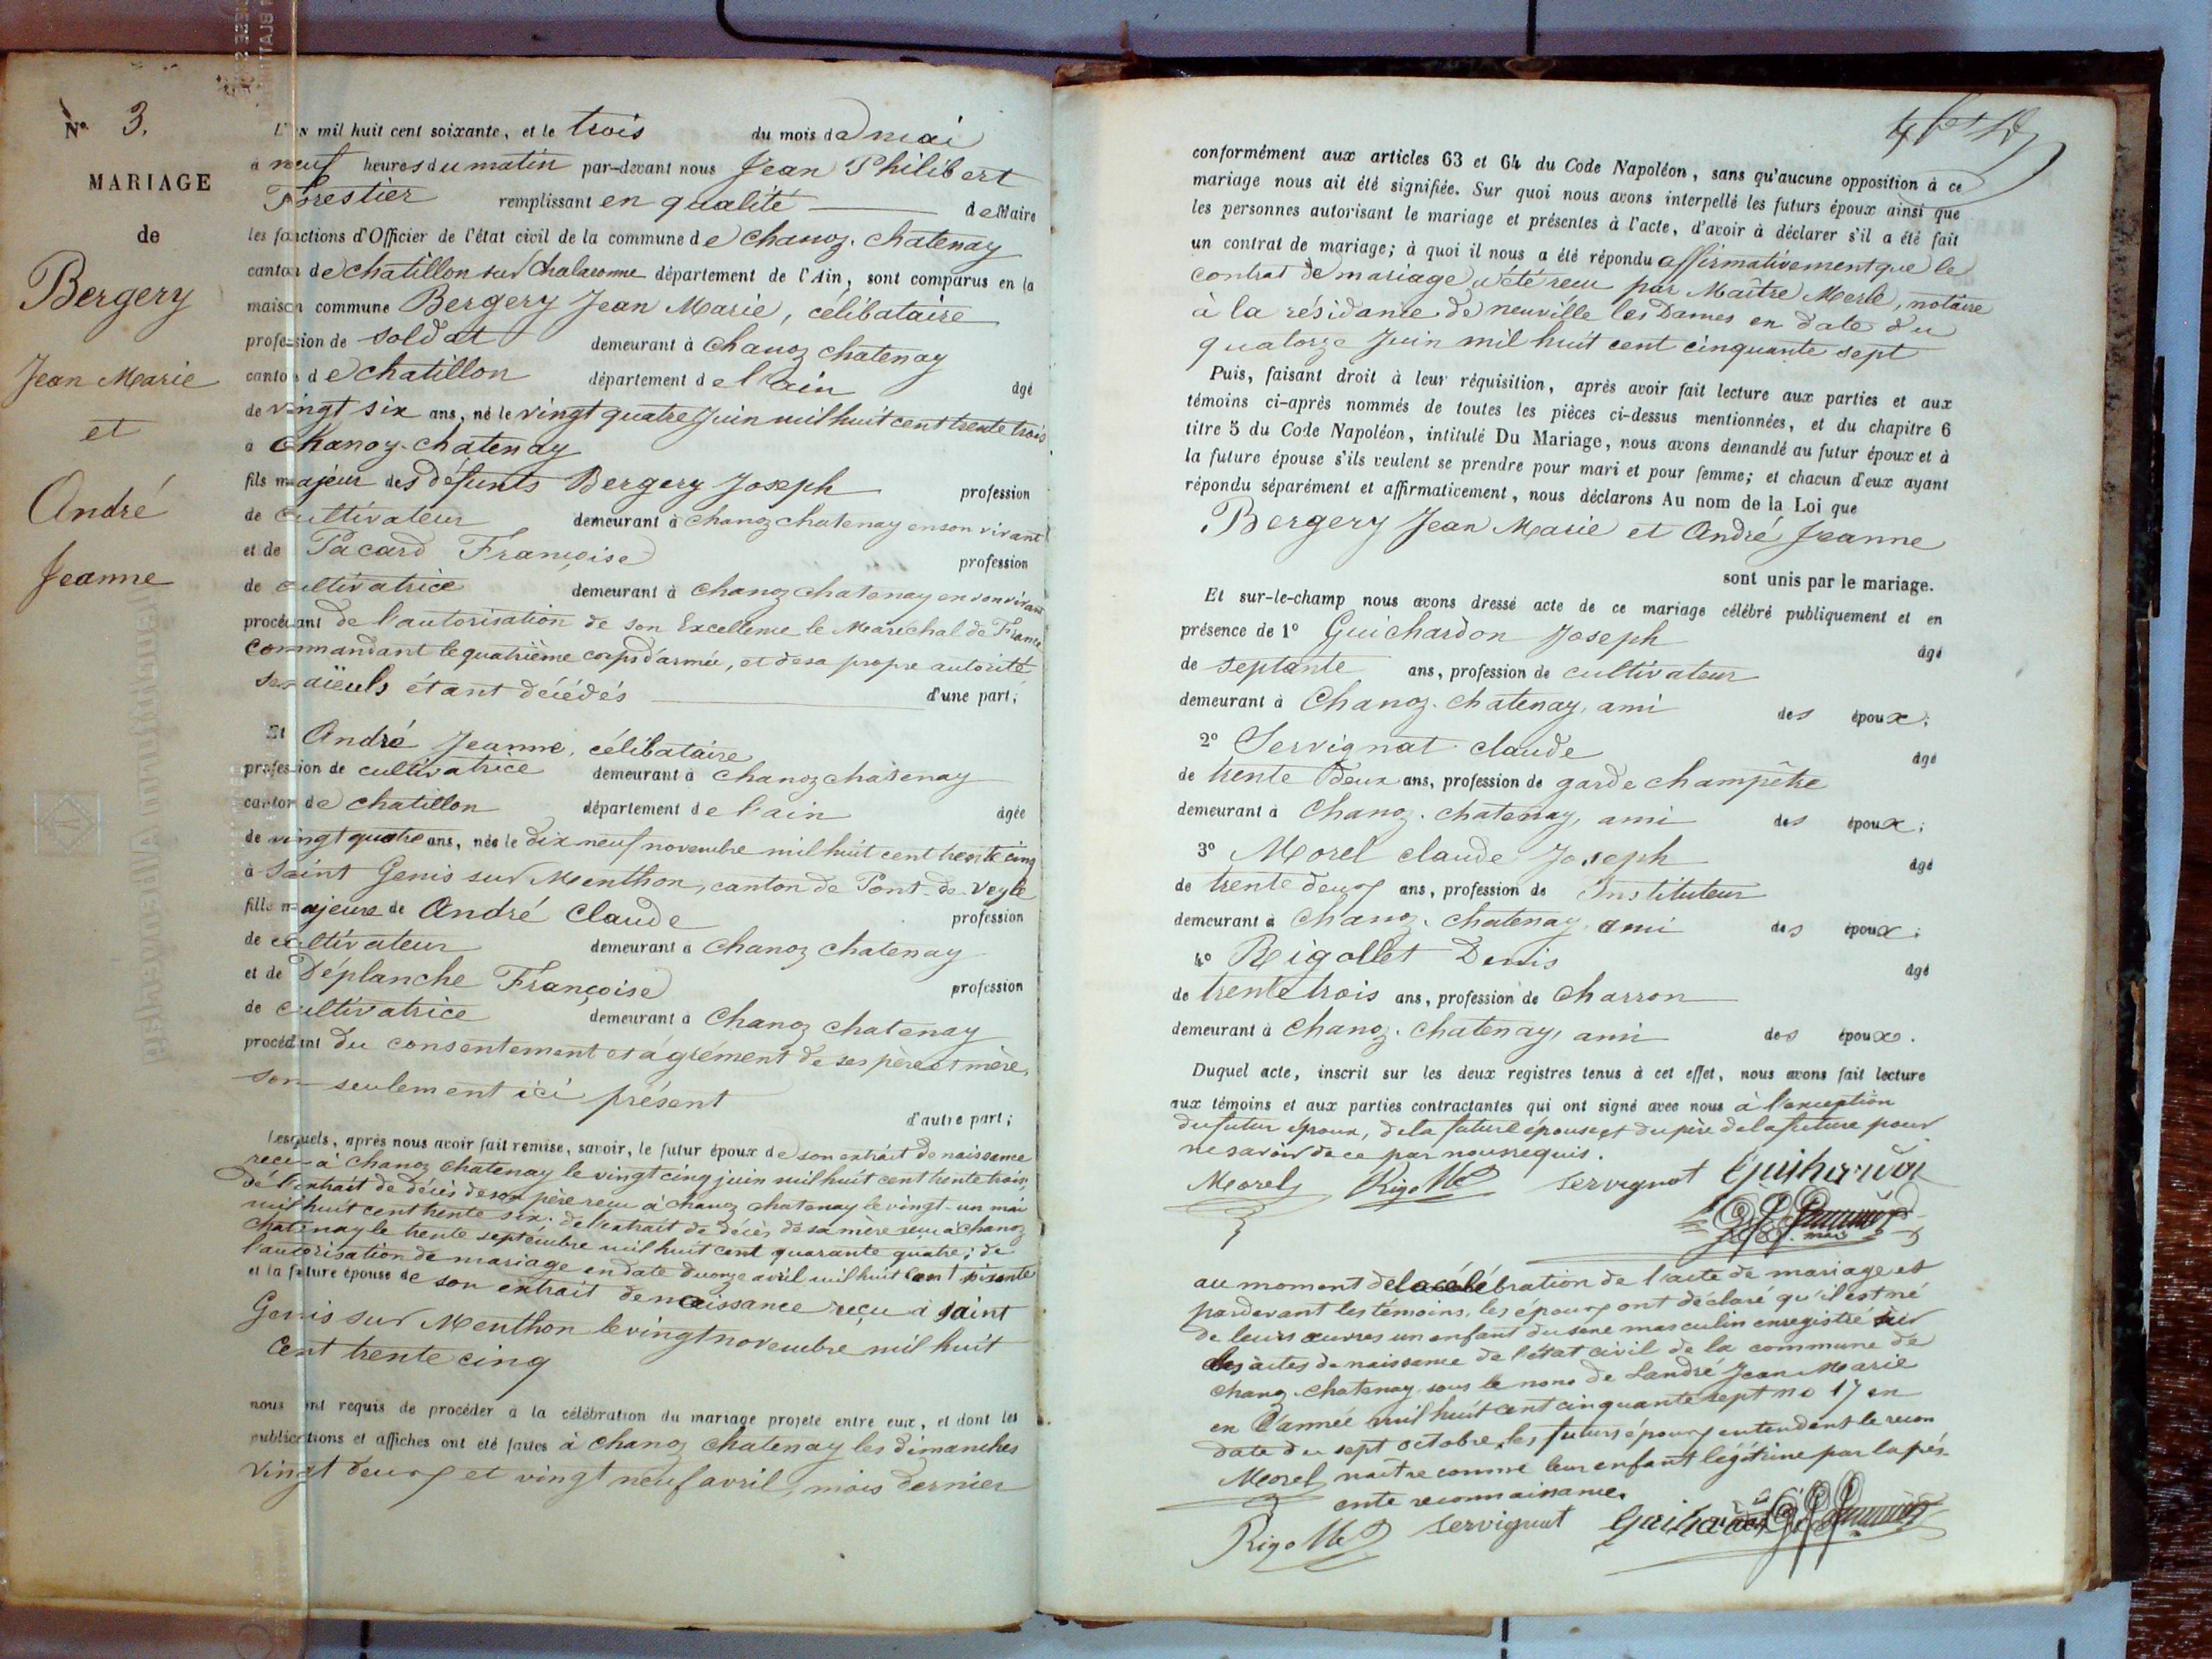 N° 3.
MARIAGE
de
Bergery
Jean Marie
et
André
Jeanne
L'an mil huit cent soixante, et le trois du mois de mai
à neuf heures du matin par-devant nous Jean Philibert
Forestier remplissant en qualité de Maire
les fonctions d'Officier de l'état civil de la commune de Chanoz-Chatenay
canton de chatillon sur Chalaronne département de l'Ain, sont comparus en la
maison commune Bergery Jean Marie, célibataire
profession de soldat demeurant à Chanoz chatenay
canton de chatillon département de l'ain âgé
de vingt six ans, né le vingt quatre Juin mil huit cent trente trois
à Chanoz-chatenay
fils majeur des défunts Bergery Joseph profession
de cultivateur demeurant à chanoz chatenay en son vivant
et de Pacard Françoise profession
de cultivatrice demeurant à Chanoz chatenay en son vivant
procédant de l'autorisation de son Excellence le Maréchal de France
Commandant le quatrième corps d'armée, et de sa propre autorité
ses aïeuls étant décédés d'une part;
Et André Jeanne, célibataire
profession de cultivatrice demeurant à chanoz chatenay
canton de chatillon département de l'ain âgée
de vingt quatre ans, née le dix neuf novembre mil huit cent trente cinq
à Saint Genis sur Menthon, canton de Pont-de-Veyle
fille majeure de André Claude profession
de cultivateur demeurant à Chanoz chatenay
et de Déplanche Françoise profession
de cultivatrice demeurant à Chanoz chatenay
procédant du consentement et agrément de ses père et mère,
son seulement ici présent
d'autre part;
Lesquels, après nous avoir fait remise, savoir, le futur époux de son extrait de naissance
reçu à Chanoz Chatenay le vingt cinq juin mil huit cent trente trois,
de l'extrait de décès de son père reçu à chanoz chatenay le vingt-un mai
mil huit cent trente six; de l'extrait de décès de sa mère reçu à Chanoz
chatenay le trente septembre mil huit cent quarante quatre; de
l'autorisation de mariage en date du onze avril mil huit cent soixante
et la future épouse de son extrait de naissance reçu à saint
Genis sur Menthon le vingt novembre mil huit
cent trente cinq
nous ont requis de procéder à la célébration du mariage projeté entre eux, et dont les
publications et affiches ont été faites à chanoz chatenay les dimanches
vingt deux et vingt neuf avril, mois dernier
conformément aux articles 63 et 64 du Code Napoléon, sans qu'aucune opposition à ce
mariage nous ait été signifiée. Sur quoi nous avons interpellé les futurs époux ainsi que
les personnes autorisant le mariage et présentes à l'acte, d'avoir à déclarer s'il a été fait
un contrat de mariage; à quoi il nous a été répondu affirmativement que le
contrat de mariage a été reçu par Maître Merle, notaire
à la résidance de neuville les Dames en date du
quatorze Juin mil huit cent cinquante sept
Puis, faisant droit à leur réquisition, après avoir fait lecture aux parties et aux
témoins ci-après nommés de toutes les pièces ci-dessus mentionnées, et du chapitre 6
titre 5 du Code Napoléon, intitulé Du Mariage, nous avons demandé au futur époux et à
la future épouse s'ils veulent se prendre pour mari et pour femme; et chacun d'eux ayant
répondu séparément et affirmativement, nous déclarons Au nom de la Loi que
Bergery Jean Marie et André Jeanne
sont unis par le mariage.
Et sur-le-champ nous avons dressé acte de ce mariage célébré publiquement et en
présence de 1° Guichardon Joseph âgé
de septante ans, profession de cultivateur
demeurant à Chanoz-chatenay, ami des époux;
2° Servignat claude âgé
de trente deux ans, profession de garde champêtre
demeurant à Chanoz-chatenay, ami des époux;
3° Morel claude Joseph âgé
de trente deux ans, profession de Instituteur
demeurant à Chanoz-chatenay, ami des époux;
4° Rigollet Denis âgé
de trente trois ans, profession de charron
demeurant à Chanoz-chatenay, ami des époux.
Duquel acte, inscrit sur les deux registres tenus à cet effet, nous avons fait lecture
aux témoins et aux parties contractantes qui ont signé avec nous à l'exception
du futur époux, de la future épouse et du père de la future pour
ne savoir de ce par nous requis.
Morel Rigollet servignat Guichardon
au moment de la célébration de l'acte de mariage et
pardevant les témoins, les époux ont déclaré qu'il est né
de leurs œuvres un enfant du sexe masculin enregistré sur
les actes de naissance de l'état civil de la commune de
Chanoz-Chatenay sous le nom de Landré Jean Marie
en l'année mil huit cent cinquante sept no 17 en
date du sept octobre, les futurs époux entendent le recon
Morel naître comme leur enfant légitime par la pés-
ente reconnaissance.
Rigollet servignat Guichardon